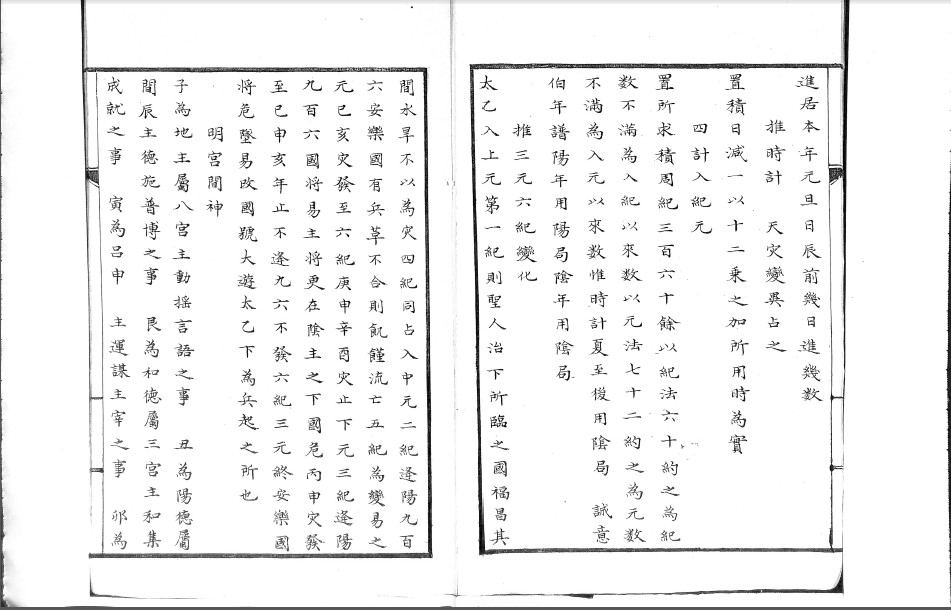 進居本年元旦日辰前幾日進幾数
推時計　天災變異占之
置積日減一以十二乗之加所用時為實
四計入紀元
置所求積周紀三百六十餘以紀法六十約之為紀
数不滿為入紀以來数以元法七十二約之為元数
不滿為入元以來数惟時計夏至後用陰局　誠意
伯年譜陽年用陽局陰年用陰局
推三元六紀變化
太乙入上元第一紀則聖人治下所臨之國福昌其
間水旱不以為灾四紀同占入中元二紀逢陽九百
六安樂國有兵草不合則飢饉流亡五紀為變易之
元巳亥灾發至六紀庚申辛酉灾止下元三紀逢陽
九百六國將易主將更在陰主之下國危丙申灾發
至巳申亥年止不逢九六不發六紀三元終安樂國
将危墜易改國號大遊太乙下為兵起之所也
明宮間神
子為地主屬八宮主動揺言語之事　丑為陽德屬
間辰主德施普博之事　艮為和德屬三宮主和集
成就之事　寅為吕申　主運謀主宰之事　夘為